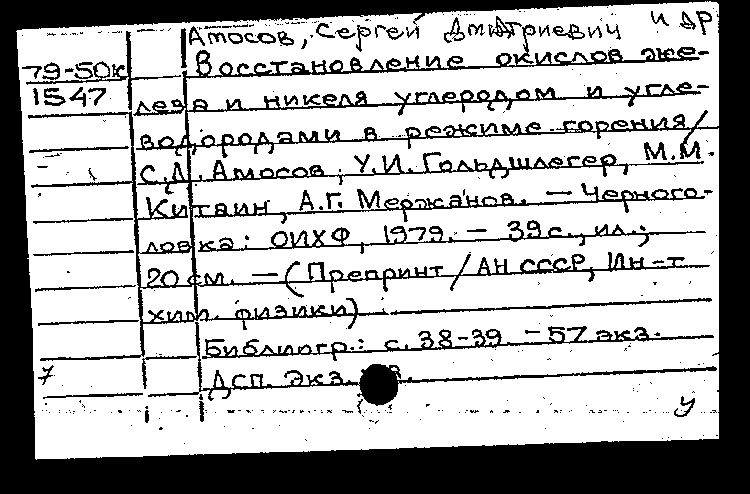 Амосов, Сергей Дмитриевич и др
79-50к Восстановление окислов же-
1547 леза и никеля углеродом и угле-
водородами в режиме горения/
С.Д. Амосов, У.И. Гольдшлегер, М.М.
Китаин, А.Г. Мержанов. — Черного-
ловка: ОИХФ, 1979. — 39 с., ил.;
20 см. — (Препринт / АН СССР, Ин-т
хим. физики)
Библиогр.: с. 38-39. — 57 экз.
7 Дсп. Экз.
У